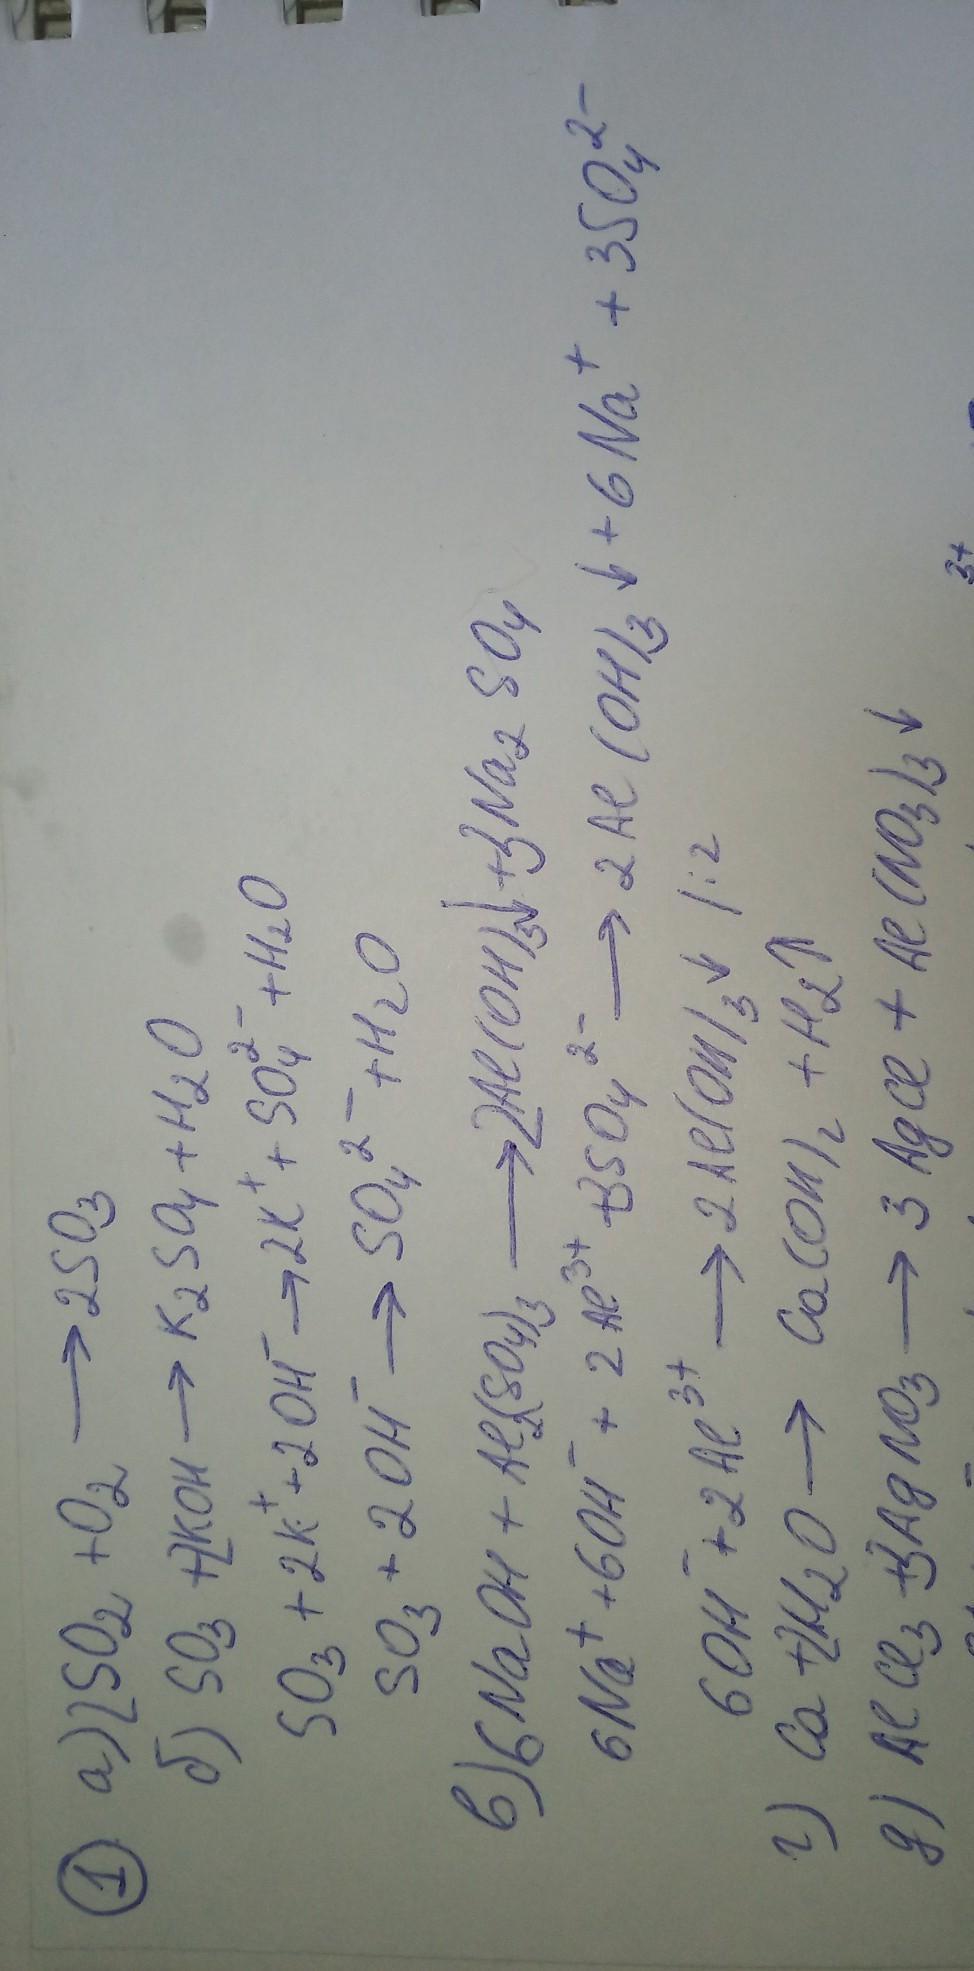 1 а) 2SO₂ + O₂ → 2SO₃
б) SO₃ + 2KOH → K₂SO₄ + H₂O
SO₃ + 2K⁺ + 2OH⁻ → 2K⁺ + SO₄²⁻ + H₂O
SO₃ + 2OH⁻ → SO₄²⁻ + H₂O
в) 6NaOH + Al₂(SO₄)₃ → 2Al(OH)₃↓ + 3Na₂SO₄
6Na⁺ + 6OH⁻ + 2Al³⁺ + 3SO₄²⁻ → 2Al(OH)₃↓ + 6Na⁺ + 3SO₄²⁻
6OH⁻ + 2Al³⁺ → 2Al(OH)₃↓ /:2
г) Ca + 2H₂O → Ca(OH)₂ + H₂↑
д) AlCl₃ + 3AgNO₃ → 3AgCl + Al(NO₃)₃↓
3+